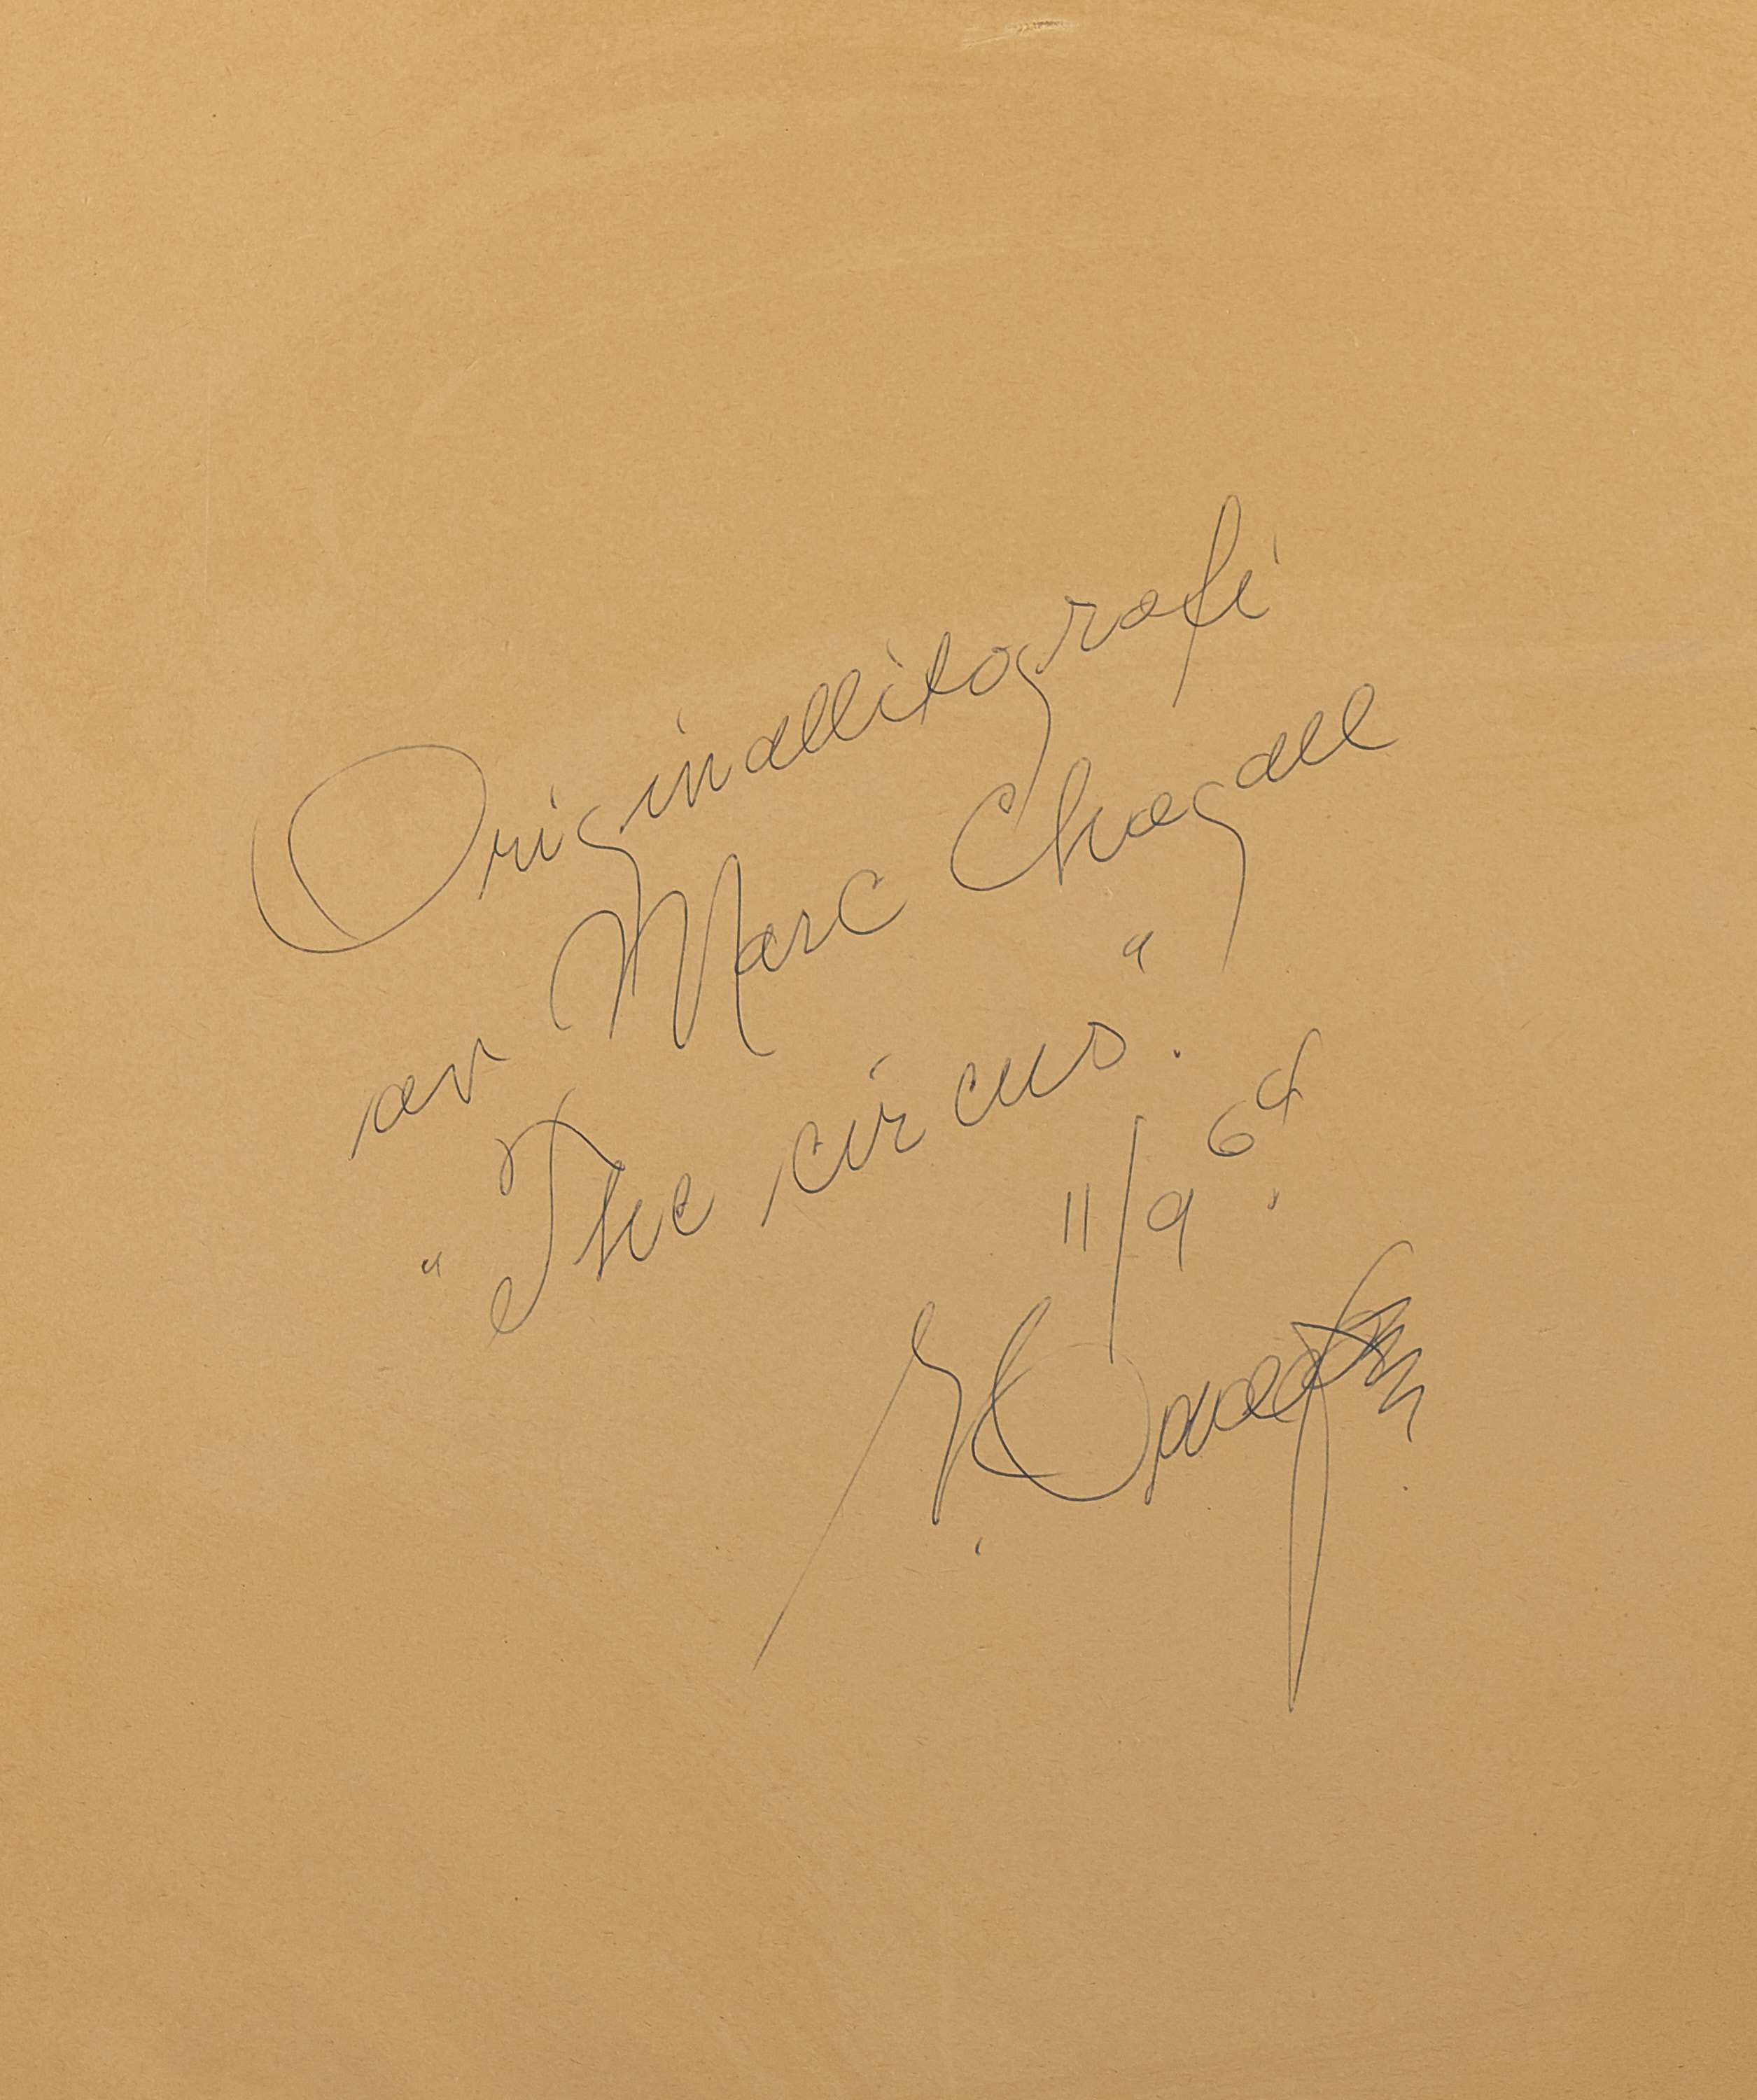 Originallitografi
av Marc Chagall
"The circus."
11/9 69.